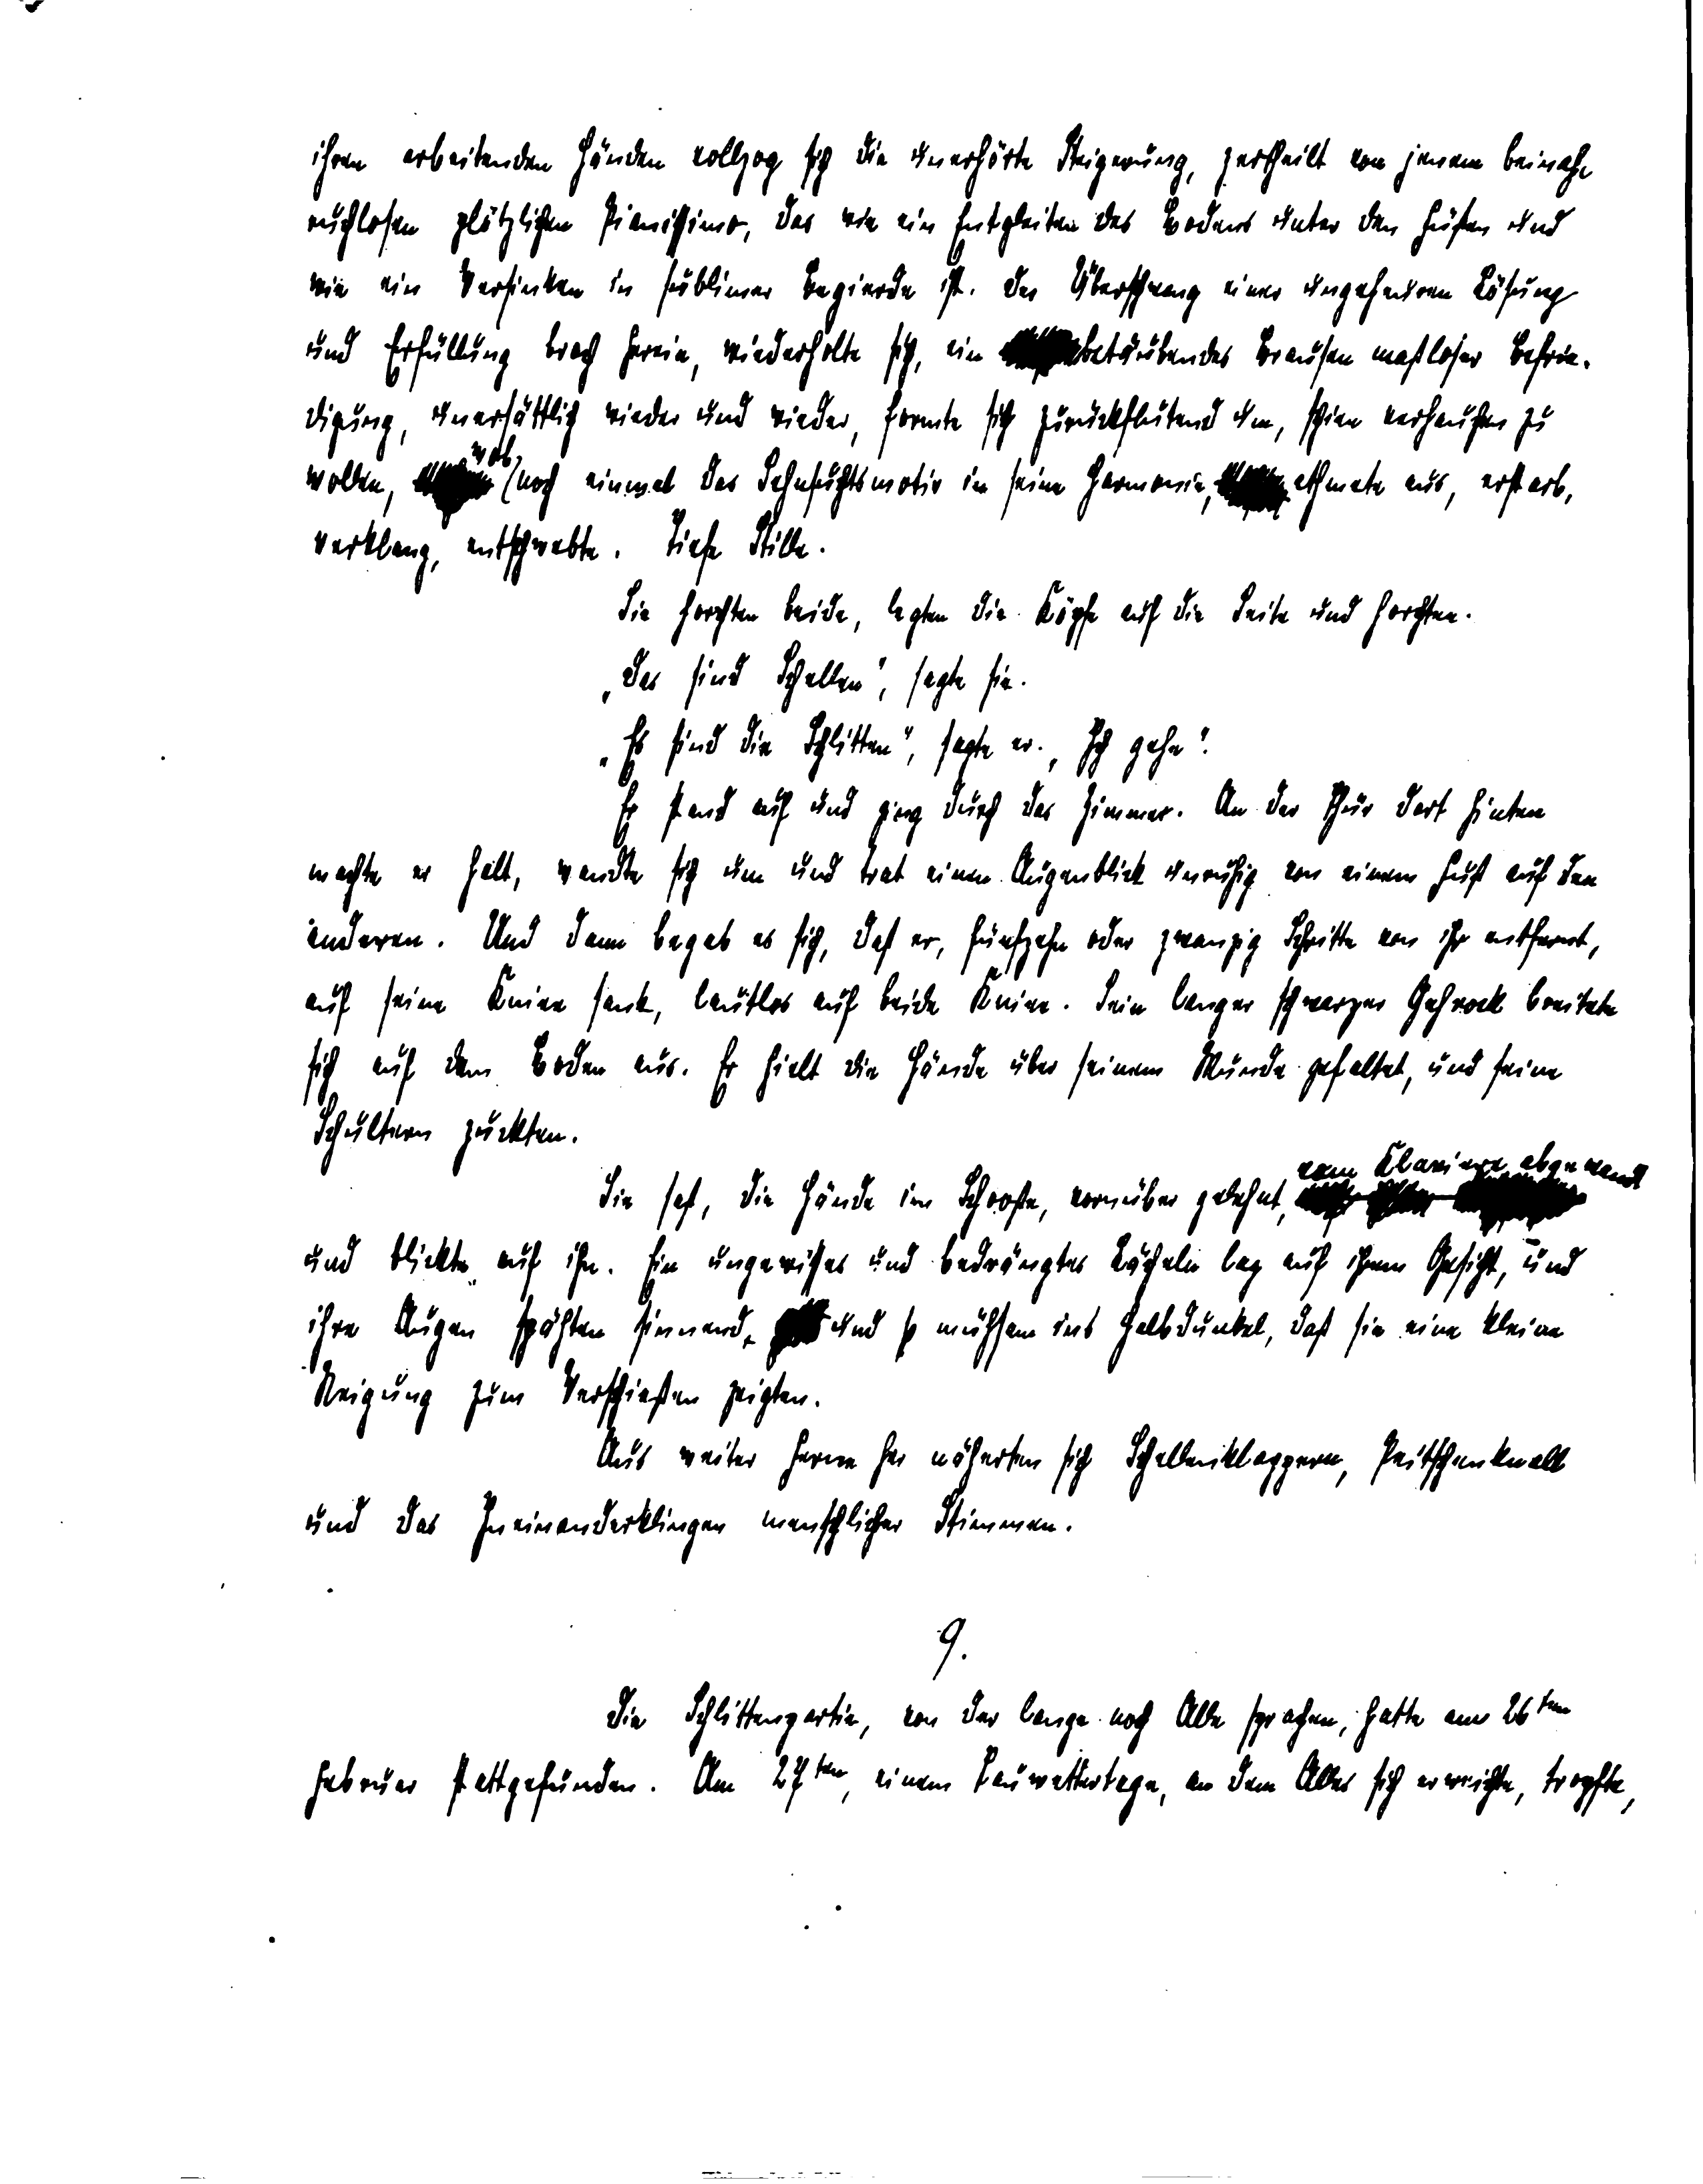 ihren arbeitenden Händen vollzog sich die unerhörte Steigerung, zertheilt von jenem beinahe
ruchlosen plötzlichen Pianissimo, das wie ein Entgleiten des Bodens unter den Füßen und
wie ein Versinken in sublimer Begierde ist. Der Überschwang einer ungeheuren Lösung
und Erfüllung brach herein, wiederholte sich, ein betäubendes Brausen maßloser Befrie-
digung, unersättlich wieder und wieder, formte sich zurückflutend um, schien verhauchen zu
wollen, wob noch einmal das Sehnsuchtsmotiv in seine Harmonie, athmete aus, erstarb,
verklang, entschwebte. Tiefe Stille.
Sie horchten beide, legten die Köpfe auf die Seite und horchten.
„Das sind Schellen“, sagte sie.
„Es sind die Schlitten“, sagte er. „Ich gehe“.
Er stand auf und ging durch das Zimmer. An der Thür dort hinten
machte er halt, wandte sich um und trat einen Augenblick unruhig von einem Fuß auf den
anderen. Und dann begab es sich, daß er, fünfzehn oder zwanzig Schritte von ihr entfernt,
auf seine Kniee sank, lautlos auf beide Kniee. Sein langer schwarzer Gehrock breitete
sich auf dem Boden aus. Er hielt die Hände über seinem Munde gefaltet, und seine
Schultern zuckten.
Sie saß, die Hände im Schooße, vornüber gelehnt, vom Klaviere abgewandt
und blickte auf ihn. Ein ungewisses und bedrängtes Lächeln lag auf ihrem Gesicht, und
ihre Augen spähten sinnend und so mühsam ins Halbdunkel, daß sie eine kleine
Neigung zum Verschießen zeigten.
Aus weiter Ferne her näherten sich Schellenklappern, Peitschenknall
und das Ineinanderklingen menschlicher Stimmen.
9.
Die Schlittenpartie, von der lange noch Alle sprachen, hatte am 26ten
Februar stattgefunden. Am 27ten, einem Tauwettertage, an dem Alles sich erweichte, tropfte,